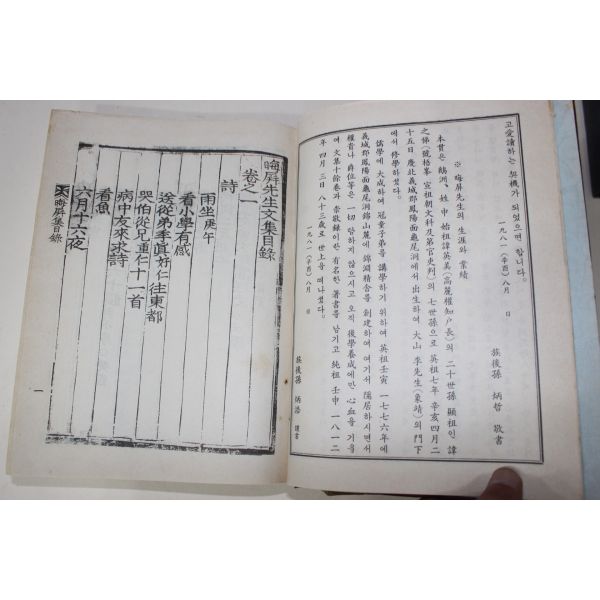 고 愛讀하는 契機가 되었으면 합니다.
一九八一(辛酉)八月 日
族後孫 炳哲 敬書
※ 晦屛先生의 生涯와 業績
本貫은 鵝洲、姓 申 始祖諱英美(高麗權知戶長)의 二十世孫 顯祖인 諱
之悌(號梧峯 宣祖朝文科及第官吏判)의 七世孫으로 英祖七年 辛亥四月二
十五日 慶北義城郡鳳陽面龜尾洞에서 出生하여 大山 李先生(象靖)의 門下
에서 修學하셨다.
儒學에 大成하여 冠童子弟를 講學하기 위하여 英祖壬寅 一七七六年에
義城郡鳳陽面龜尾洞錦山麓에 錦淵精舍를 創建하여 여기서 隱居하시면서
權貴나 爵位等은 一切 탐하지 않으시고 오직 後學養成에만 心血을 기울
여 文集十餘卷과 崇敬錄이란 有名한 著書를 남기고 純祖 壬申 一八一二
年 四月 三日 八十三歲로 世上을 떠나셨다.
一九八一(辛酉)八月 日
族後孫 炳浩 謹書
晦屛先生文集目錄
卷之一
詩
雨坐庚午
看小學有感
送從弟季眞好仁往東都
哭伯從兄重仁十一首
病中友來求詩
看魚
六月十六夜
晦屛集目錄
一